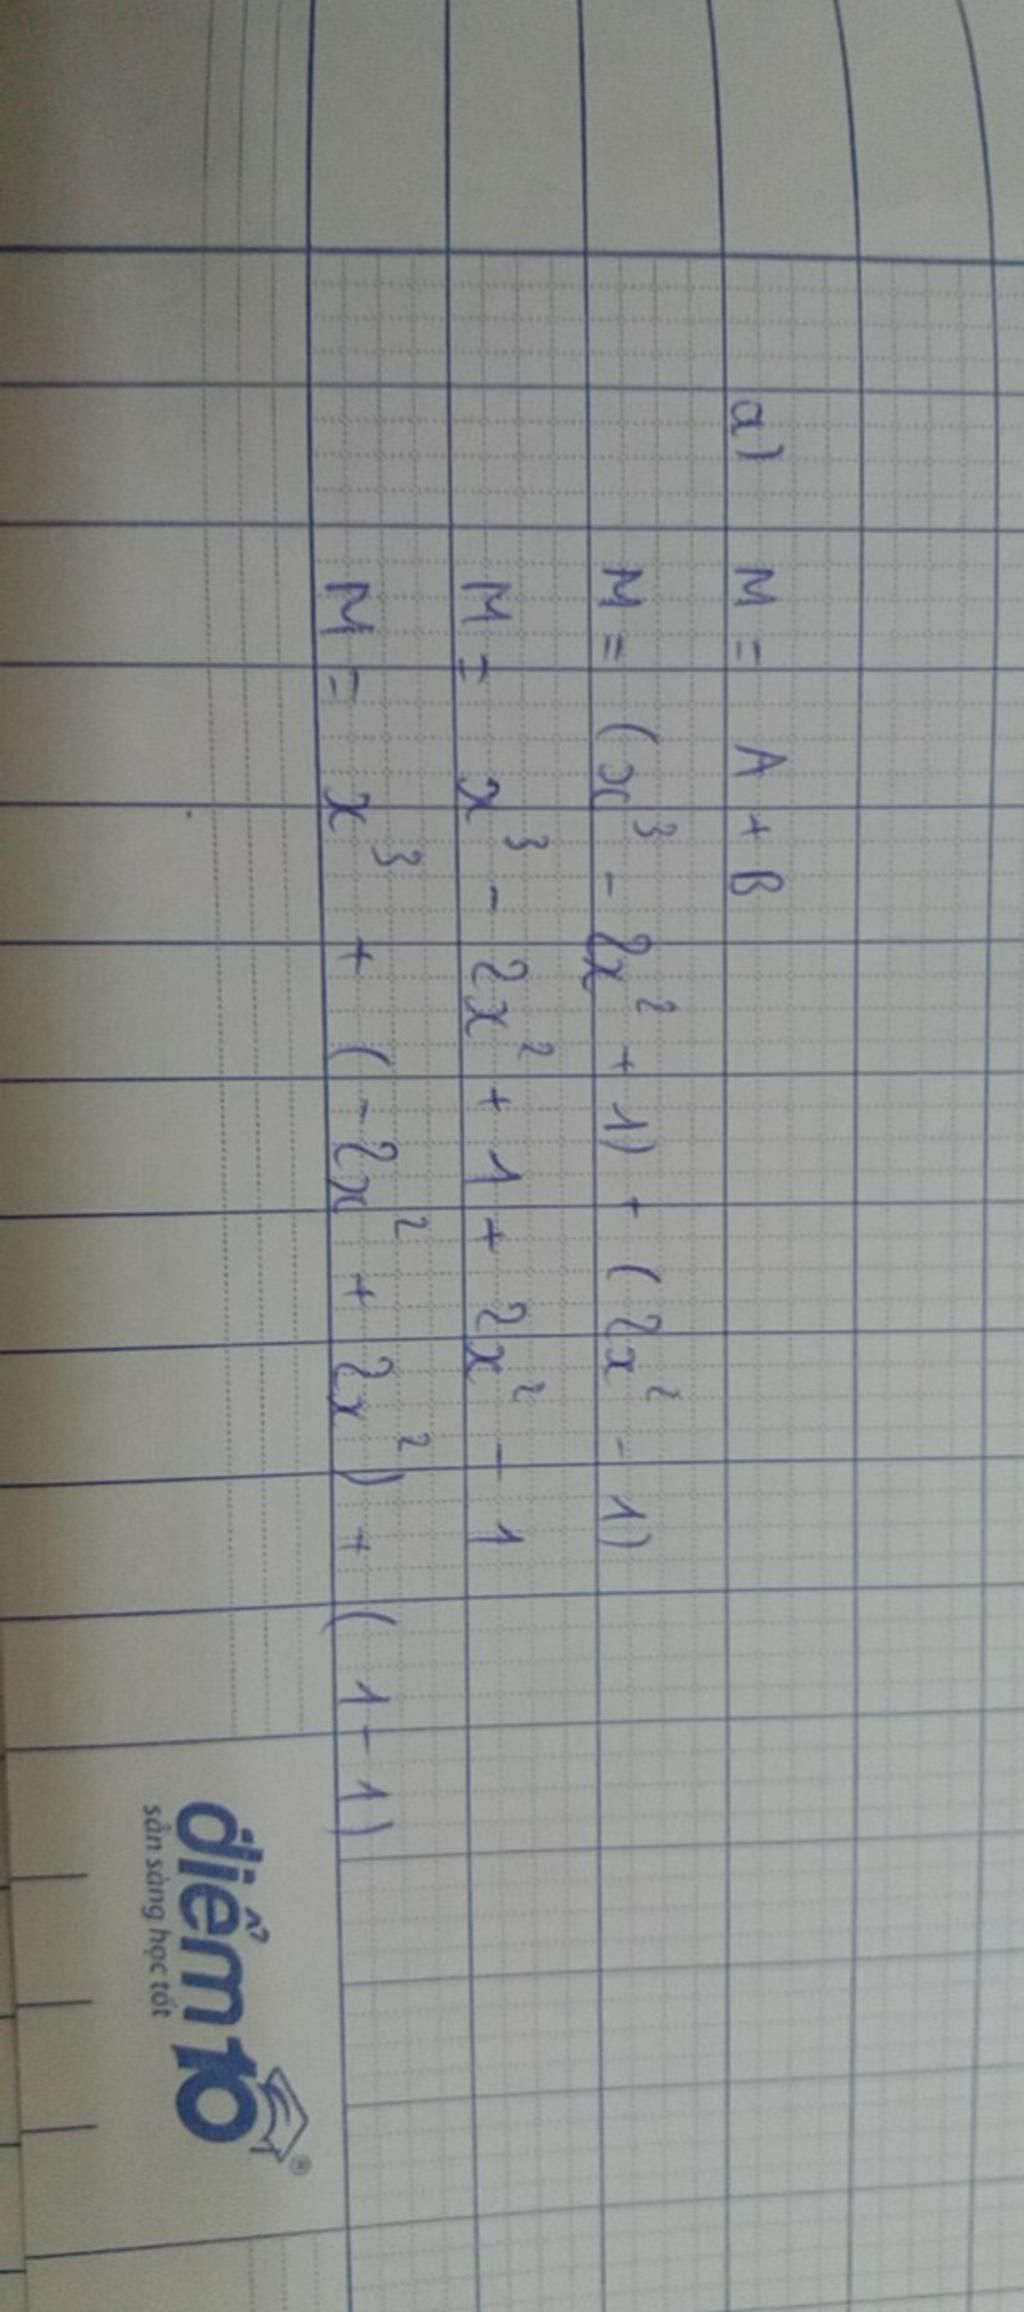 a) M = A + B
M = (x³ - 2x² + 1) + (2x² - 1)
M = x³ - 2x² + 1 + 2x² - 1
M = x³ + (-2x² + 2x²) + (1 - 1)
điểm10
sẵn sàng học tốt